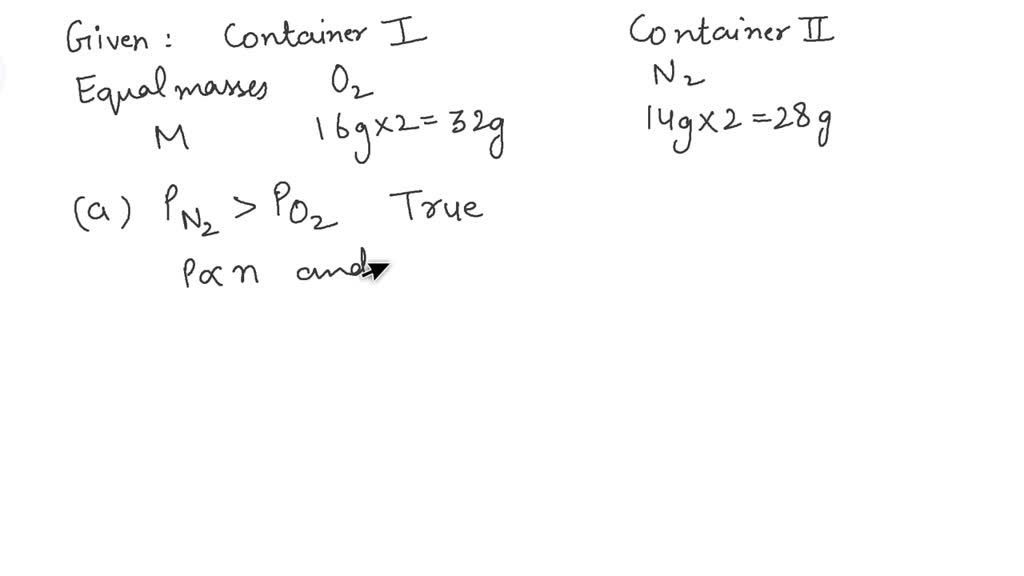 Given: Container I Container II
Equal masses O₂ N₂
M 16g×2=32g 14g×2=28g
(a) P_N₂ > P_O₂ True
P∝n and